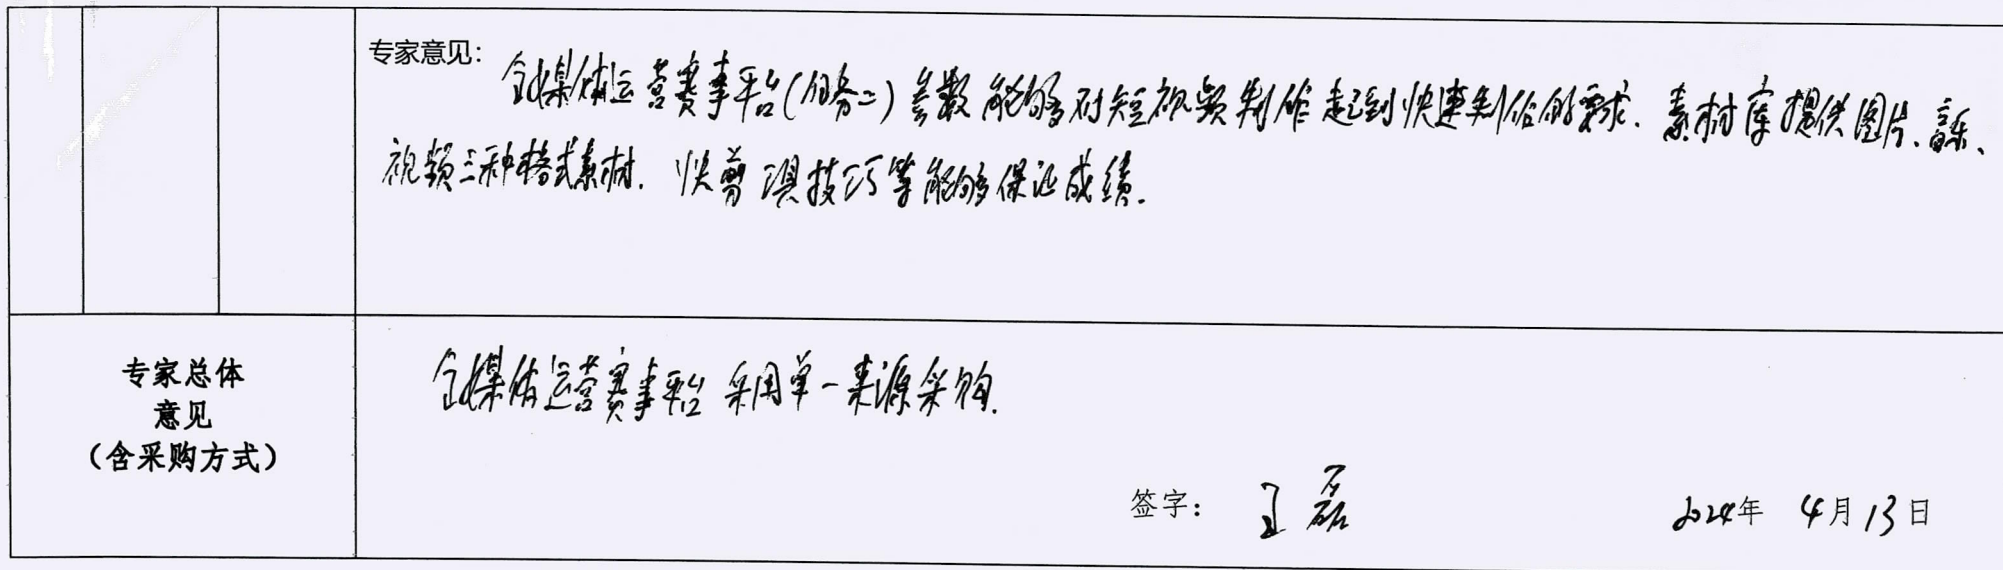 专家意见：
全媒体运营赛事平台(任务二)参数能够对短视频制作起到快速制作的要求.素材库提供图片、音乐、
视频三种格式素材.快剪 技巧等能够保证成绩.
专家总体
意见
（含采购方式）
全媒体运营赛事平台采用单一来源采购.
签字：王磊 2024年4月13日